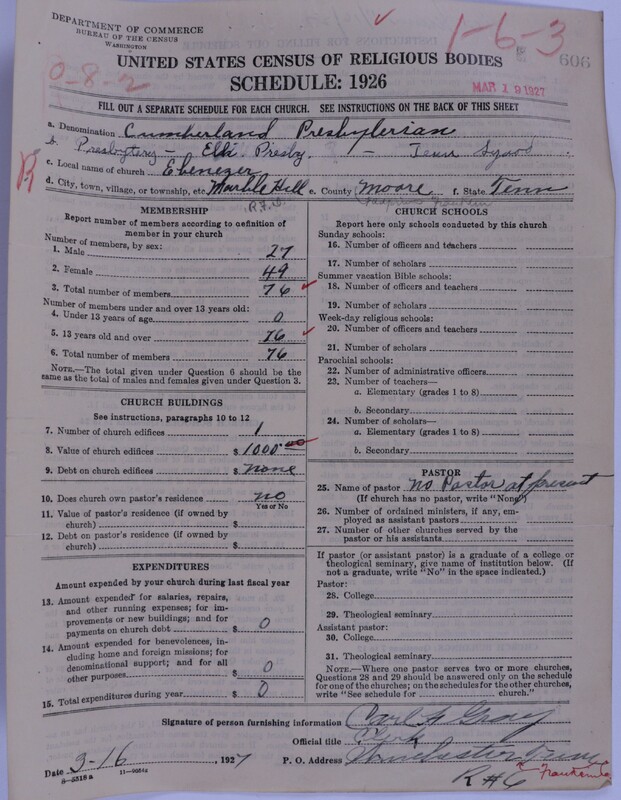 DEPARTMENT OF COMMERCE
BUREAU OF THE CENSUS
WASHINGTON
1-6-3
606
0-8-2
UNITED STATES CENSUS OF RELIGIOUS BODIES
SCHEDULE: 1926
MAR 19 1927
FILL OUT A SEPARATE SCHEDULE FOR EACH CHURCH. SEE INSTRUCTIONS ON THE BACK OF THIS SHEET
a. Denomination Cumberland Presbyterian
b. Presbytery - Elk Presby. - Tenn Synod
c. Local name of church Ebenezer
R
d. City, town, village, or township, etc. Marble Hill e. County Moore f. State Tenn
R.F.D.
MEMBERSHIP
Report number of members according to definition of
member in your church
Number of members, by sex:
1. Male 27
2. Female 49
3. Total number of members 76
Number of members under and over 13 years old:
4. Under 13 years of age 0
5. 13 years old and over 76
6. Total number of members 76
NOTE.—The total given under Question 6 should be
same as the total of males and females given under Question 3.
CHURCH BUILDINGS
See instructions, paragraphs 10 to 12
7. Number of church edifices 1
8. Value of church edifices $ 1000 00
9. Debt on church edifices $ none
10. Does church own pastor's residence no
Yes or No
11. Value of pastor's residence (if owned by
church) $
12. Debt on pastor's residence (if owned by
church) $
EXPENDITURES
Amount expended by your church during last fiscal year
13. Amount expended for salaries, repairs,
and other running expenses; for im-
provements or new buildings; and for
payments on church debt $ 0
14. Amount expended for benevolences, in-
cluding home and foreign missions; for
denominational support; and for all
other purposes $ 0
15. Total expenditures during year $ 0
CHURCH SCHOOLS
Report here only schools conducted by this church
Sunday schools:
16. Number of officers and teachers
17. Number of scholars
Summer vacation Bible schools:
18. Number of officers and teachers
19. Number of scholars
Week-day religious schools:
20. Number of officers and teachers
21. Number of scholars
Parochial schools:
22. Number of administrative officers
23. Number of teachers—
a. Elementary (grades 1 to 8)
b. Secondary
24. Number of scholars—
a. Elementary (grades 1 to 8)
b. Secondary
PASTOR
25. Name of pastor no Pastor at present
(If church has no pastor, write "None")
26. Number of ordained ministers, if any, em-
ployed as assistant pastors
27. Number of other churches served by the
pastor or his assistants
If pastor (or assistant pastor) is a graduate of a college or
theological seminary, give name of institution below. (If
not a graduate, write "No" in the space indicated.)
Pastor:
28. College
29. Theological seminary
Assistant pastor:
30. College
31. Theological seminary
NOTE.—Where one pastor serves two or more churches,
Questions 28 and 29 should be answered only on the schedule
for one of the churches; on the schedules for the other churches,
write "See schedule for church."
Signature of person furnishing information Carl Gray
Official title Clerk
Date 3-16, 1927 P. O. Address Winchester Tenn
R#6
8-5318a 11-9052